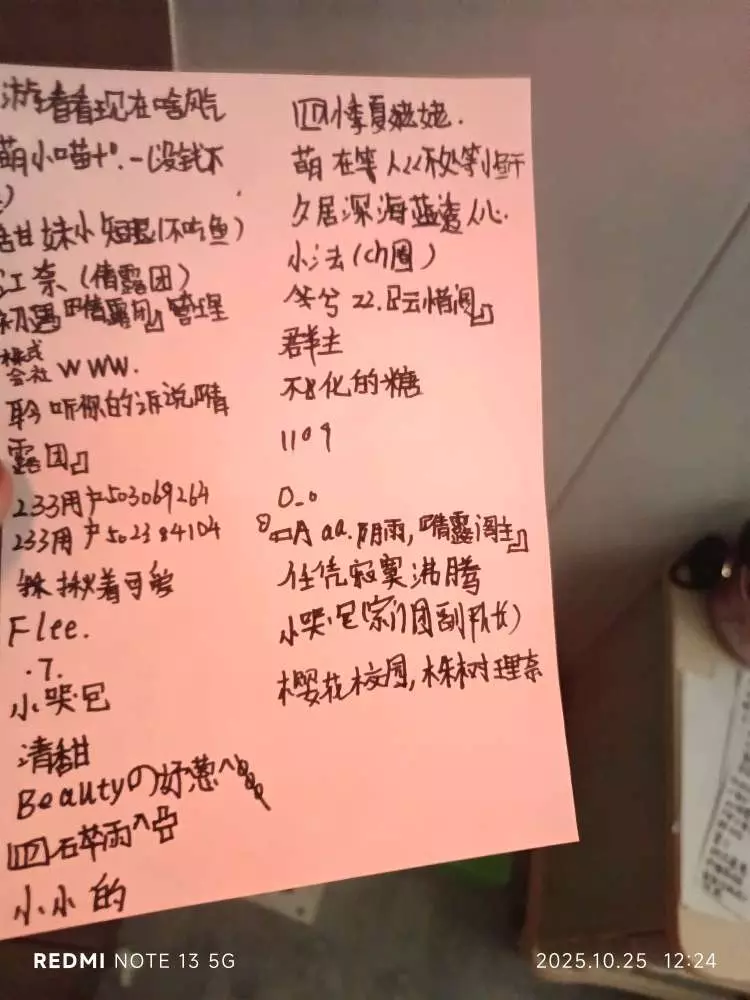 看看现在啥风气
萌小喵十°.一(没钱不
甜妹小短腿(不吃鱼)
江奈(倩露团)
初遇『晴露团』管理
株式
会社WWW.
聆听你的诉说晴
露团』
233用户503069264
233用户502384104
揪着可爱
Flee.
.7.
小哭包
清甜
Beautyの好葱^
四石草雨^
小小的
四小季夏姥姥.
萌在等人
夕居深海蓝透人心.
小法(ch圈)
兮22.
群主
不化的糖
1109
0_0
A aa.阴雨,『晴露阁主』
任凭寂寞沸腾
小哭包(宗门团副队长)
樱花校园,株树理奈
REDMI NOTE 13 5G
2025.10.25 12:24